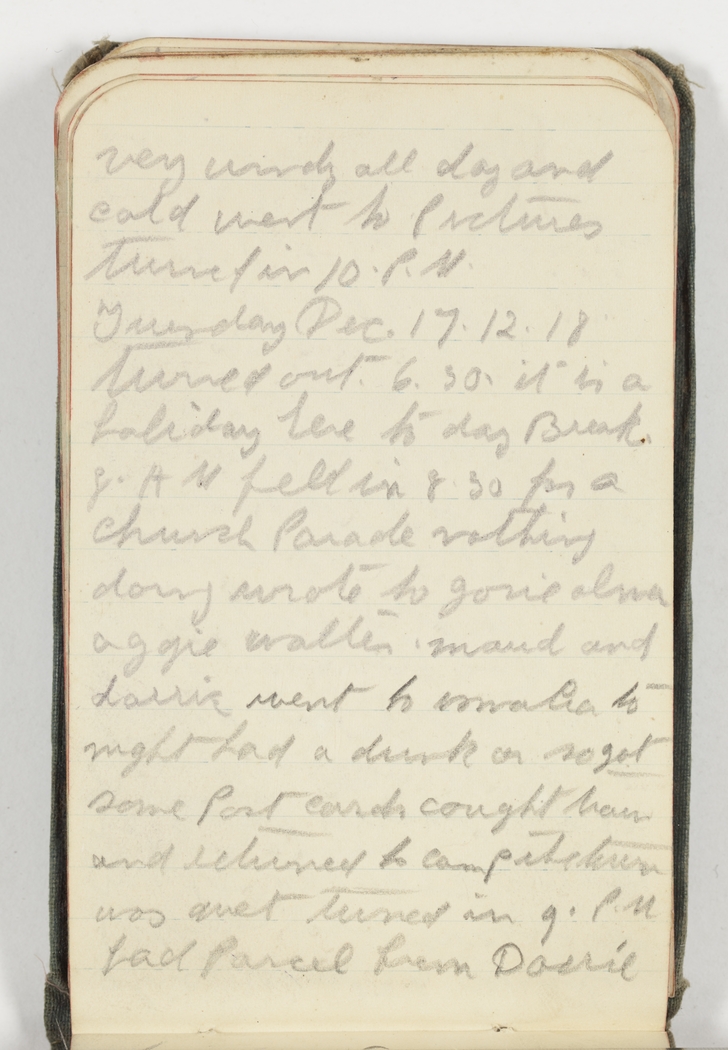 very windy all day and
cold went to Pictures
turned in 10. P.M.
Tuesday Dec. 17. 12. 18
turned out. 6. 30. it is a
holiday here to day Break.
g. A M fell in 8 30 for a
church Parade nothing
doing wrote to
aggie walter. maud and
went to to
night had a drink or so got
some Post cards cought train
and returned to camp
was quet turned in 9. P.M
had Parcel from Dorrie